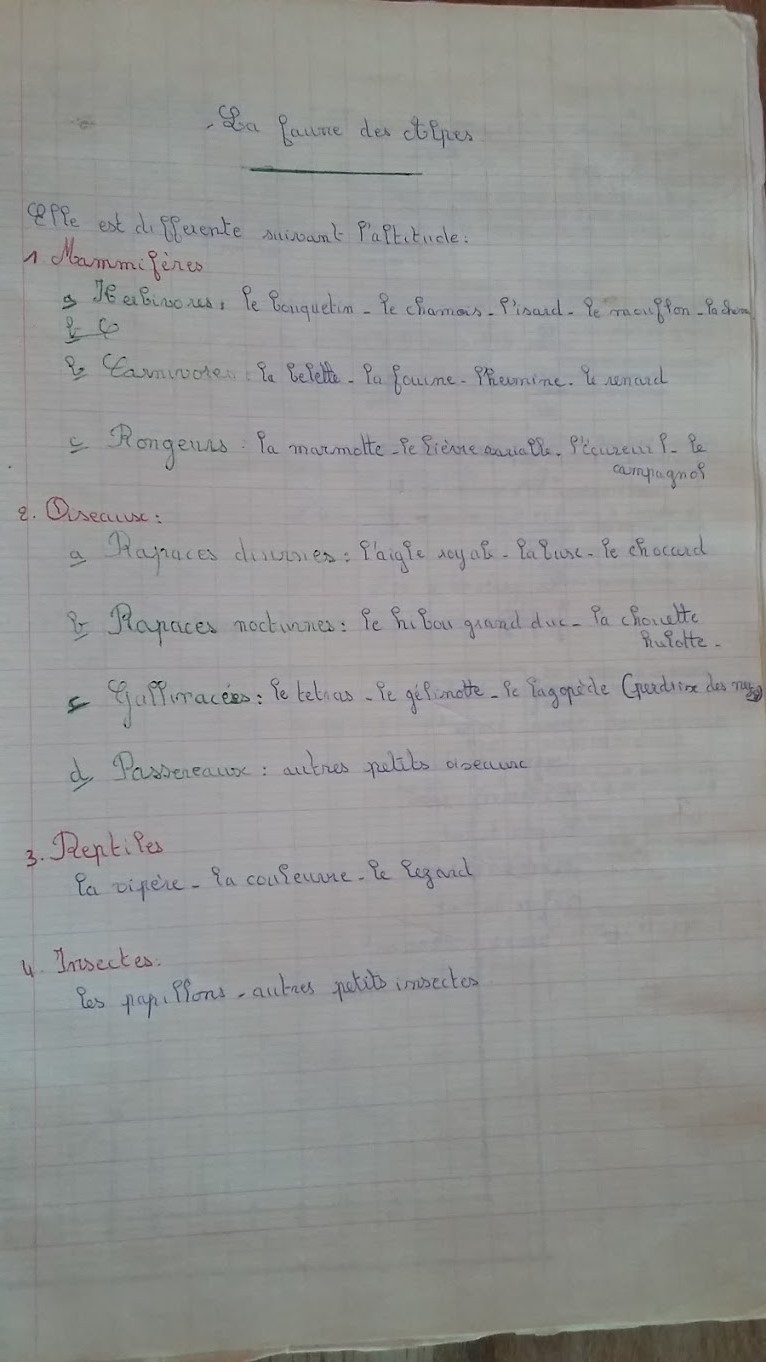 La faune des Alpes
Elle est différente suivant l'altitude:
1. Mammifères
a Herbivores: le bouquetin - le chamois - l'isard - le mouflon -
b C
b Carnivores: la belette - la fouine - l'hermine - le renard
c Rongeurs: la marmotte - le lièvre variable - l'écureuil - le
campagnol
2. Oiseaux:
a Rapaces diurnes: l'aigle royal - la buse - le choccard
b Rapaces nocturnes: le hibou grand duc - la chouette
hulotte -
c Gallinacées: le tetras - le gélinotte - le lagopède (perdrix des
d Passereaux: autres petits oiseaux
3. Reptiles
la vipère - la couleuvre - le lezard
4. Insectes:
les papillons - autres petits insectes